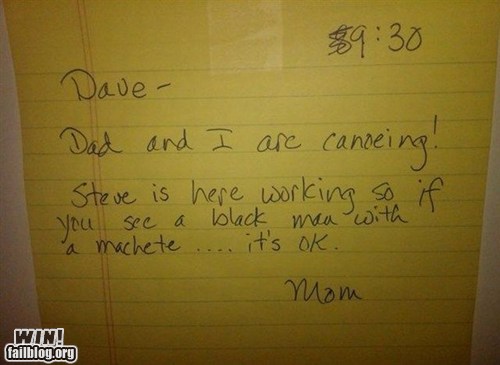 9:30
Dave -
Dad and I are canoeing!
Steve is here working so if
you see a black man with
a machete .... it's OK.
Mom
WIN!
failblog.org